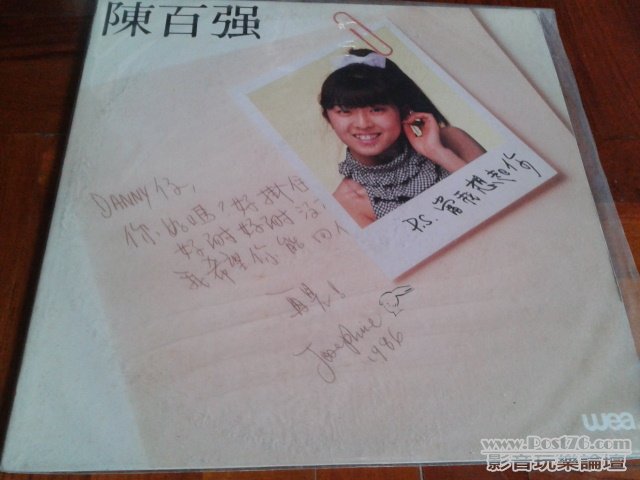 陳百强
P.S. 當我想起你
DANNY仔,
你好嗎?好掛住
好耐好耐没
我希望你能回
再見!
Josephine
1986
wea
www.Post76.com
影音玩樂論壇